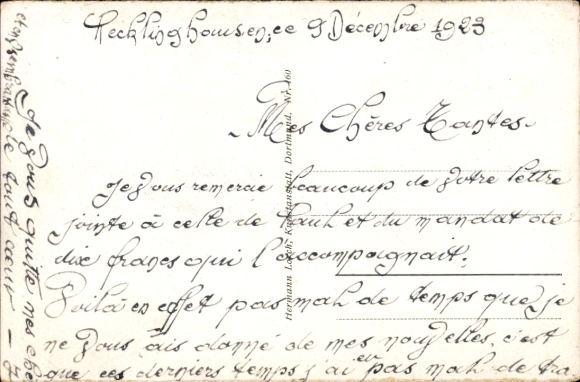 Recklinghausen, ce 9 Décembre 1923
Mes Chères Tantes.
Je vous remercie beaucoup de votre lettre
jointe à celle de Paul et du mandat de
dix francs qui l'accompagnait.
Voilà en effet pas mal de temps que je
ne vous ais donné de mes nouvelles, c'est
que ces derniers temps j'ai eu pas mal de tra
Je vous quitte mes chè
et en vous embrassant de tout cœur
Hermann Lorch, Kunstanstalt, Dortmund. Nr. 160